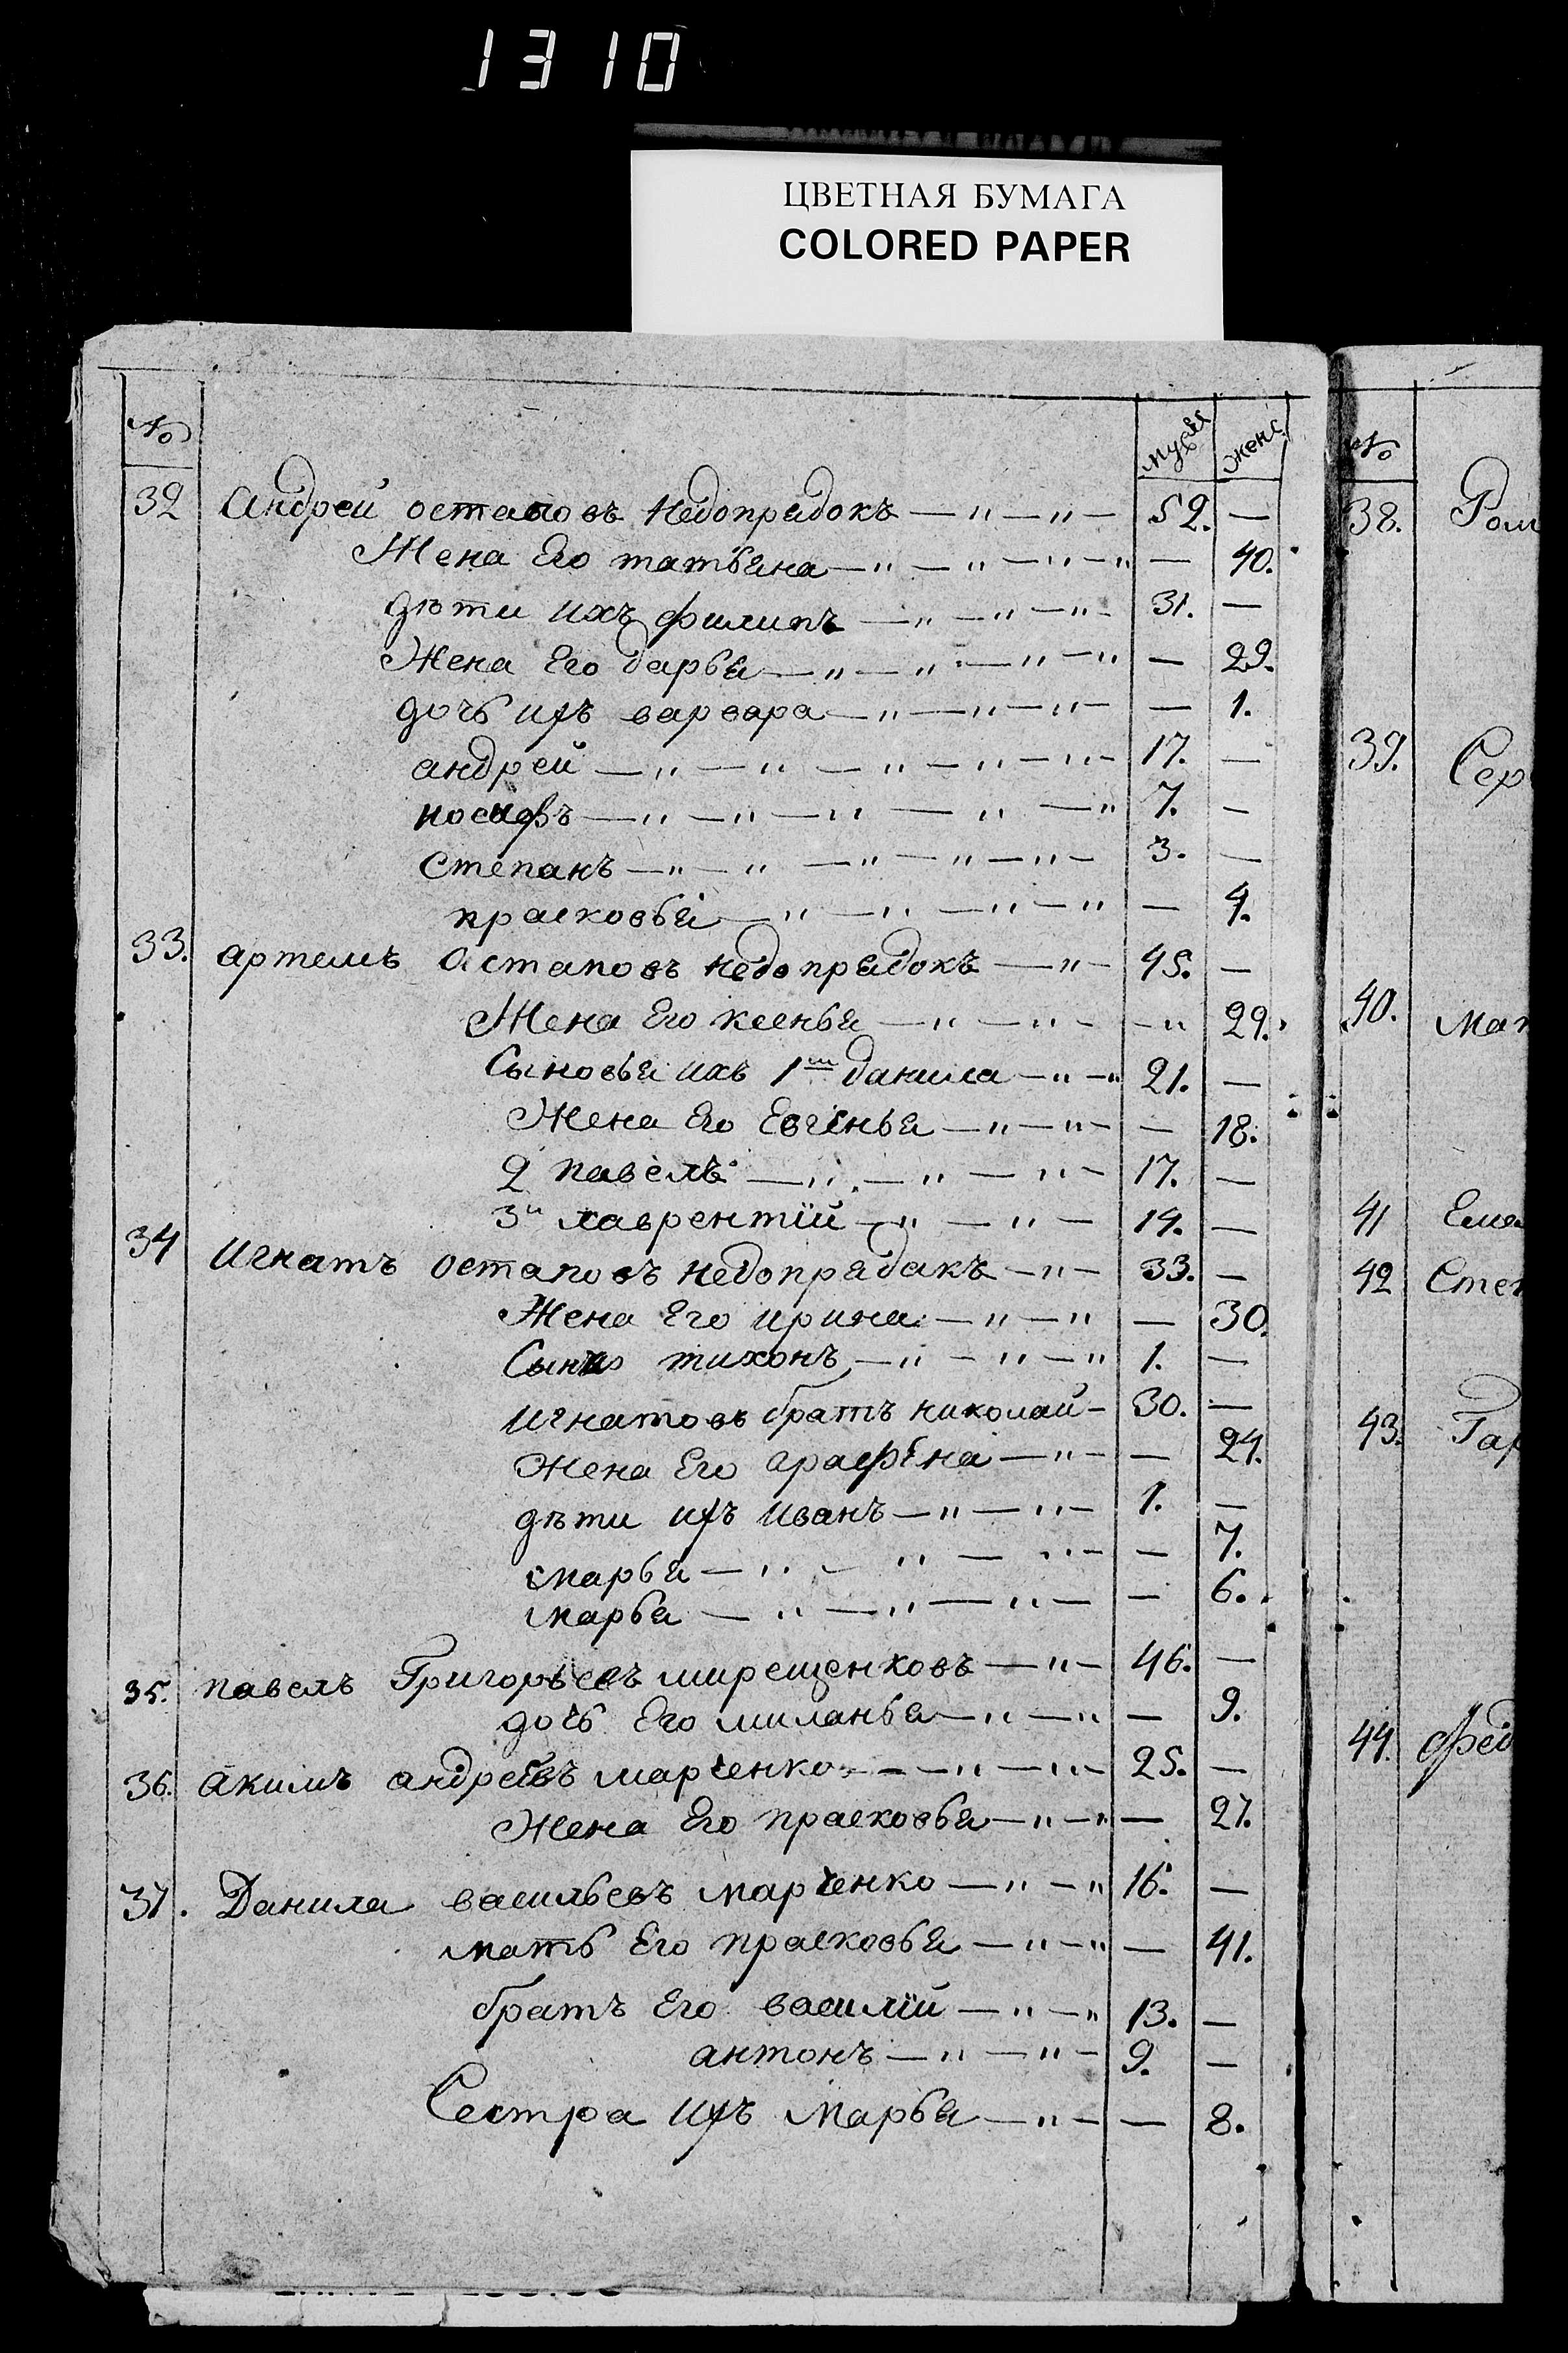 1310
ЦВЕТНАЯ БУМАГА
COLORED PAPER
№ мужес женс.
32 Андрей остаповъ недопрядокъ — " — " — 52. —
Жена Его татьяна — " — " — " — " — 40.
дѣти ихъ филипъ — " — " — " — 31. —
Жена Его дарья — " — " — " — " — 29.
дочь ихъ варвара — " — " — " — — 1.
андрей — " — " — " — " — " — 17. —
иосифъ — " — " — " — " — " 7. —
степанъ — " — " — " — " — " — 3. —
прасковья — " — " — " — " — 4.
33. артемъ Астаповъ недопрядокъ — " — 45. —
Жена Его ксенья — " — " — — " 29.
Сыновья ихъ 1й данила — " — " 21. —
Жена Его Евгенья — " — " — — 18.
2 павелъ — " — " — " — 17. —
3й лаврентій — " — " — 14. —
34 игнатъ остаповъ недопрядакъ — " — 33. —
Жена Его ирина — " — " — 30.
Сынъ тихонъ — " — " — " 1. —
игнатовъ братъ николай — 30. —
Жена Его аграфена — " — — 24.
дѣти ихъ иванъ — " — " — 1. —
марья — " — " — " — — 7.
марья — " — " — " — — 6.
35. павелъ Григорьевъ мирещенковъ — " — 46. —
дочь Его миланья — " — " — 9.
36. акимъ андреевъ марченко — — " — " — 25. —
Жена Его прасковья — " — " — 27.
37. Данила васильевъ марченко — " — " 16. —
мать Его прасковья — " — " — 41.
братъ Его василій — " — " 13. —
антонъ — " — " — 9. —
Сестра ихъ марья — " — — 8.
№
38. Ром
39. Сер
40. Мат
41 Емел
42 Степ
43. Гар
44. Фед